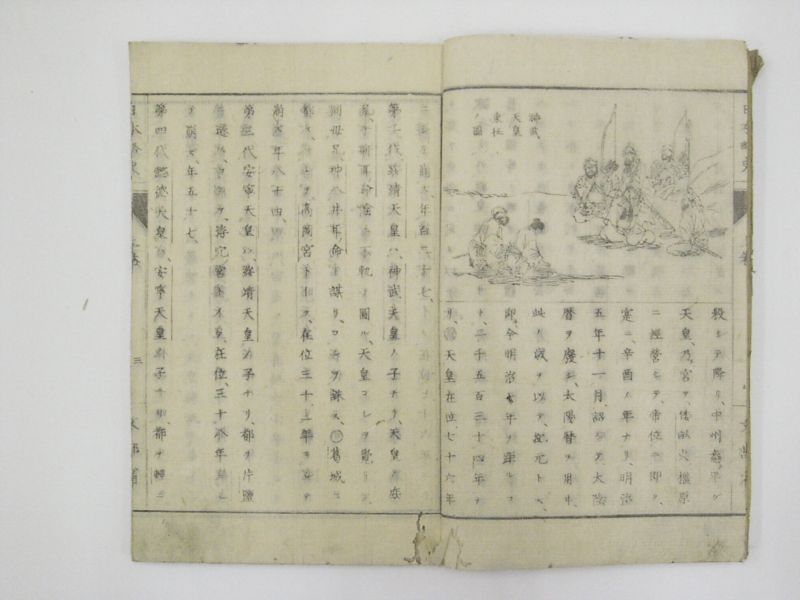 神武
天皇
東征
ノ圖
殺シテ降リ、中州悉ク平グ
天皇、乃宮ヲ、倭畝火橿原
ニ經營シテ、帝位ニ即ク、
實ニ、辛酉ノ年ナリ、明治
五年十一月、詔シテ、太陰
暦ヲ廢シ、太陽暦ヲ用ヰ、
此ノ歳ヲ以テ、紀元トス、
即、今明治七年ヲ距ル
ト、二千五百三十四年ナ
リ、天皇在位七十六年
ニシテ崩ズ、年百二十七、
第二代綏靖天皇ハ、神武天皇ノ子ナリ、天皇ノ庶
兄、手研耳命、陰ニ不軌ヲ圖ル、天皇コレヲ覺リ、
同母兄、神八井耳命ト謀リ、コレヲ誅ス、葛城ニ
都ス、高岡宮トイフ、在位三十三年ヲ
崩ズ年八十四、
第三代安寧天皇ハ、綏靖天皇ノ子ナリ、都ヲ片鹽
ニ遷ス、浮穴宮トイフ、在位、三十八年ニシ
テ崩ズ、年五十七、
第四代懿徳天皇ハ、安寧天皇ノ子ナリ、都ヲ輕ニ
日本略史
三
文部省